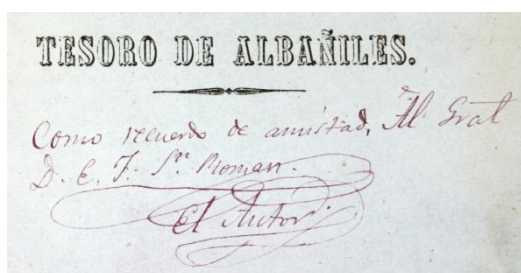 TESORO DE ALBAÑILES.
Como recuerdo de amistad, Al Gral
D. E. F. Sn. Roman.
El Autor